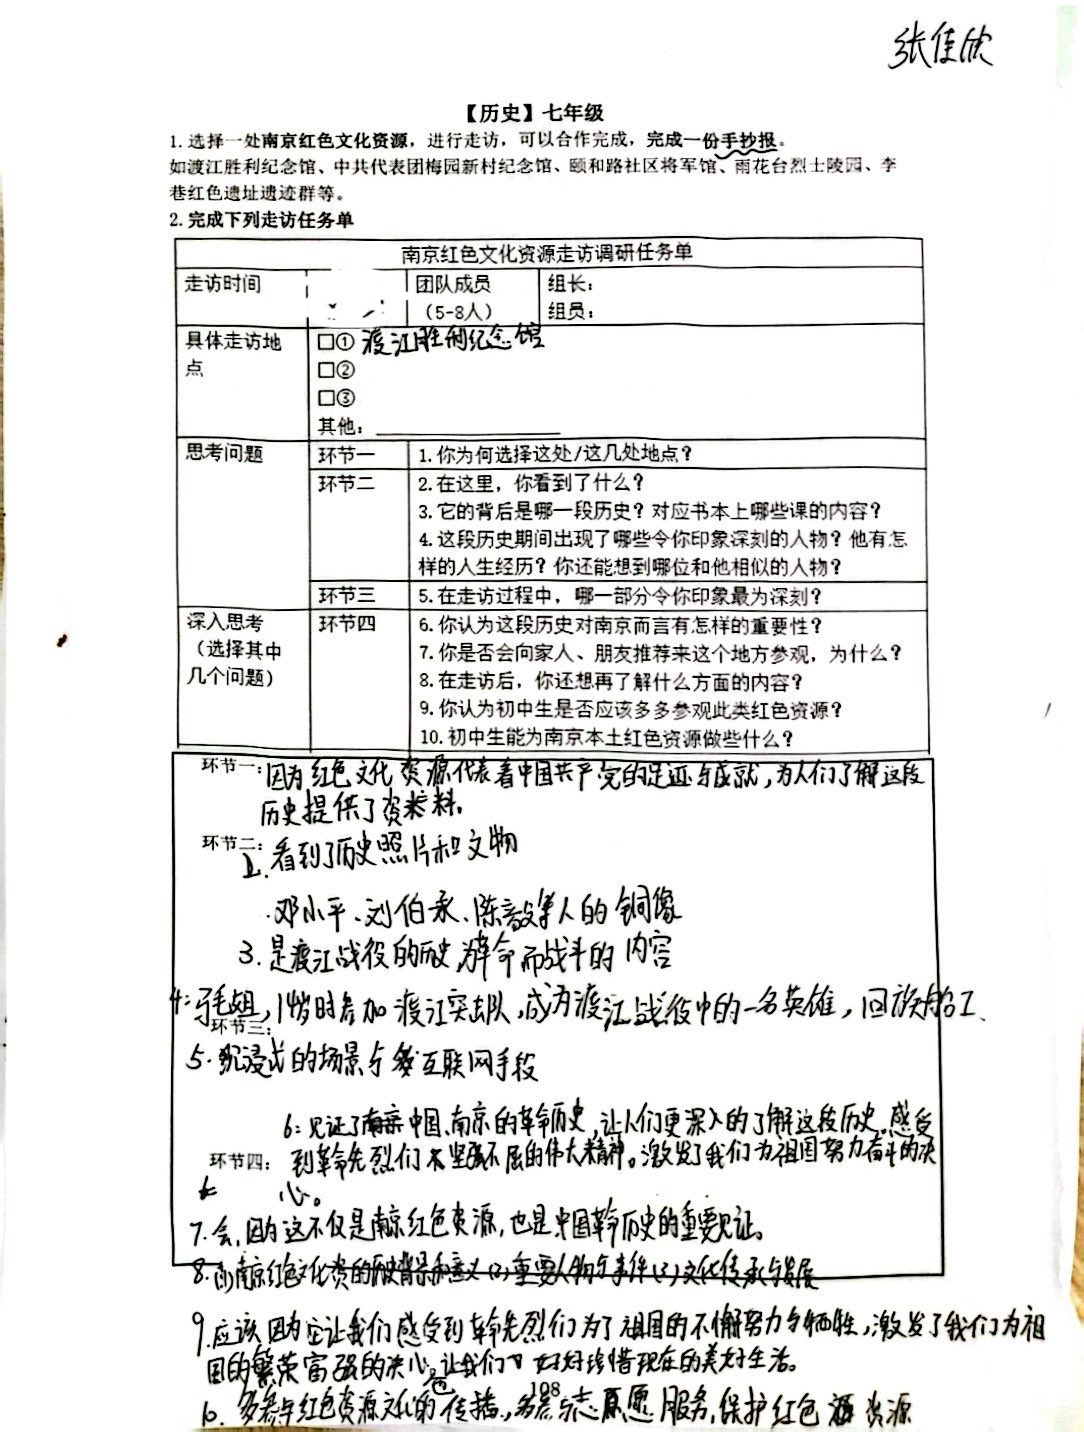 张佳欣
【历史】七年级
1. 选择一处南京红色文化资源，进行走访，可以合作完成，完成一份手抄报。
如渡江胜利纪念馆、中共代表团梅园新村纪念馆、颐和路社区将军馆、雨花台烈士陵园、李
巷红色遗址遗迹群等。
2. 完成下列走访任务单
南京红色文化资源走访调研任务单
走访时间 团队成员 组长：
（5-8人） 组员：
具体走访地 □① 渡江胜利纪念馆
点 □②
□③
其他：
思考问题 环节一 1. 你为何选择这处/这几处地点？
环节二 2. 在这里，你看到了什么？
3. 它的背后是哪一段历史？对应书本上哪些课的内容？
4. 这段历史期间出现了哪些令你印象深刻的人物？他有怎
样的人生经历？你还能想到哪位和他相似的人物？
环节三 5. 在走访过程中，哪一部分令你印象最为深刻？
深入思考 环节四 6. 你认为这段历史对南京而言有怎样的重要性？
（选择其中 7. 你是否会向家人、朋友推荐来这个地方参观，为什么？
几个问题） 8. 在走访后，你还想再了解什么方面的内容？
9. 你认为初中生是否应该多多参观此类红色资源？
10. 初中生能为南京本土红色资源做些什么？
环节一：因为红色文化资源代表着中国共产党的足迹与成就，为人们了解这段
历史提供了资料。
环节二：
2. 看到了历史照片和文物
邓小平、刘伯承、陈毅等人的铜像
3. 是渡江战役的历史，为革命而战斗的内容
4：马毛姐，14岁时参加渡江突击队，成为渡江战役中的一名英雄，
环节三：
5. 沉浸式的场景与互联网手段
6：见证了中国、南京的革命历史，让人们更深入的了解这段历史。感受
环节四： 到革命先烈们坚强不屈的伟大精神。激发了我们为祖国努力奋斗的决
心。
7. 会，因为这不仅是南京红色资源，也是中国革命历史的重要见证。
8. (1)南京红色文化资的历史背景和意义(2)重要人物与事件(3)文化传承与发展
9. 应该因为它让我们感受到革命先烈们为了祖国的不懈努力与牺牲，激发了我们为祖
国的繁荣富强的决心。让我们好好珍惜现在的美好生活。
108
10. 多参与红色资源文化的传播，多参与志愿服务，保护红色资源